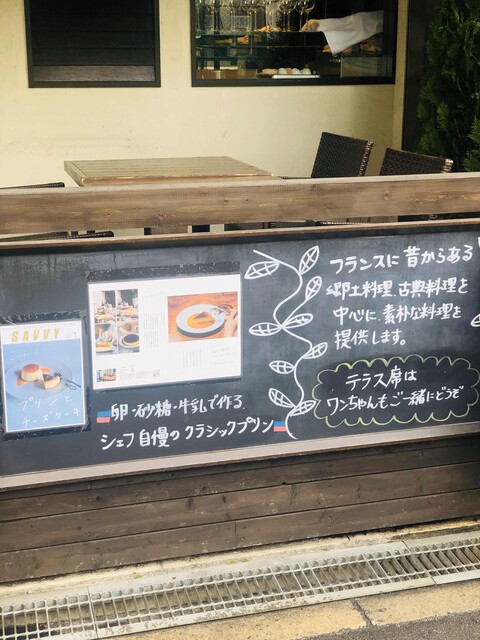 フランスに昔からある
郷土料理、古典料理を
中心に、素朴な料理を
提供します。
テラス席は
ワンちゃんもご一緒にどうぞ
SAVVY
プリンと
チーズケーキ
卵・砂糖・牛乳で作る
シェフ自慢のクラシックプリン